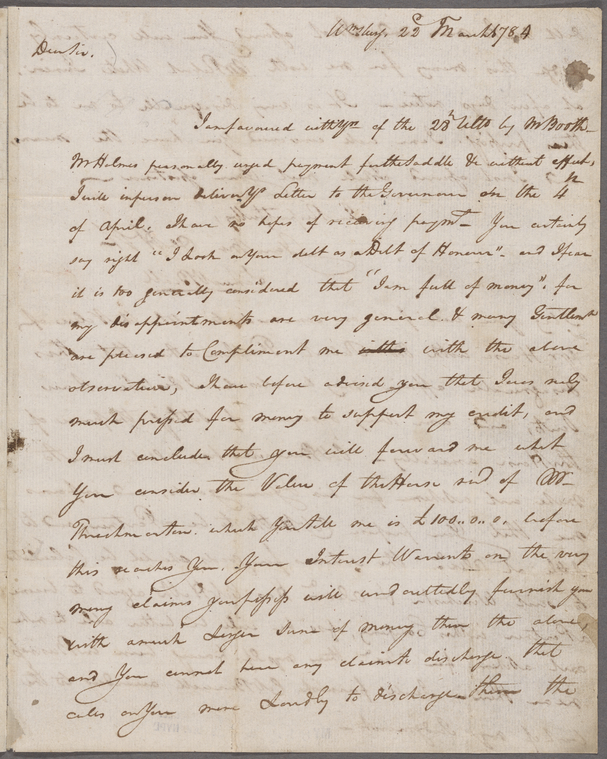 Wmsburg. 22d March 1784
Dear Sir.
I am favoured with Yrs of the 23d Ulto by Mr Booth-
Mr Holmes personally urged payment for the Saddle &c without effect,
I will in person deliver Yr Letter to the Governour on the 4th
of April. I have no hopes of receiving paymt- You certainly
say right "I look on Your debt as a Debt of Honour". and I fear
it is too generally considered that "I am full of money". for
my disappointments are very general. & many Gentlemen
are pleased to Compliment me with the above
observation, I have before advised you that I was really
much pressed for money to support my credit, and
I must conclude that you will forward me what
You consider the Value of the Horse recd of Mr
Throckmorton. which You tell me is £100..0..0. before
this reaches You. Your Interest Warrants on the very
many claims you possess will undoubtedly furnish you
with a much larger Sum of money than the above
and You cannot have any claim to discharge that
calls on You more Loudly to discharge than the